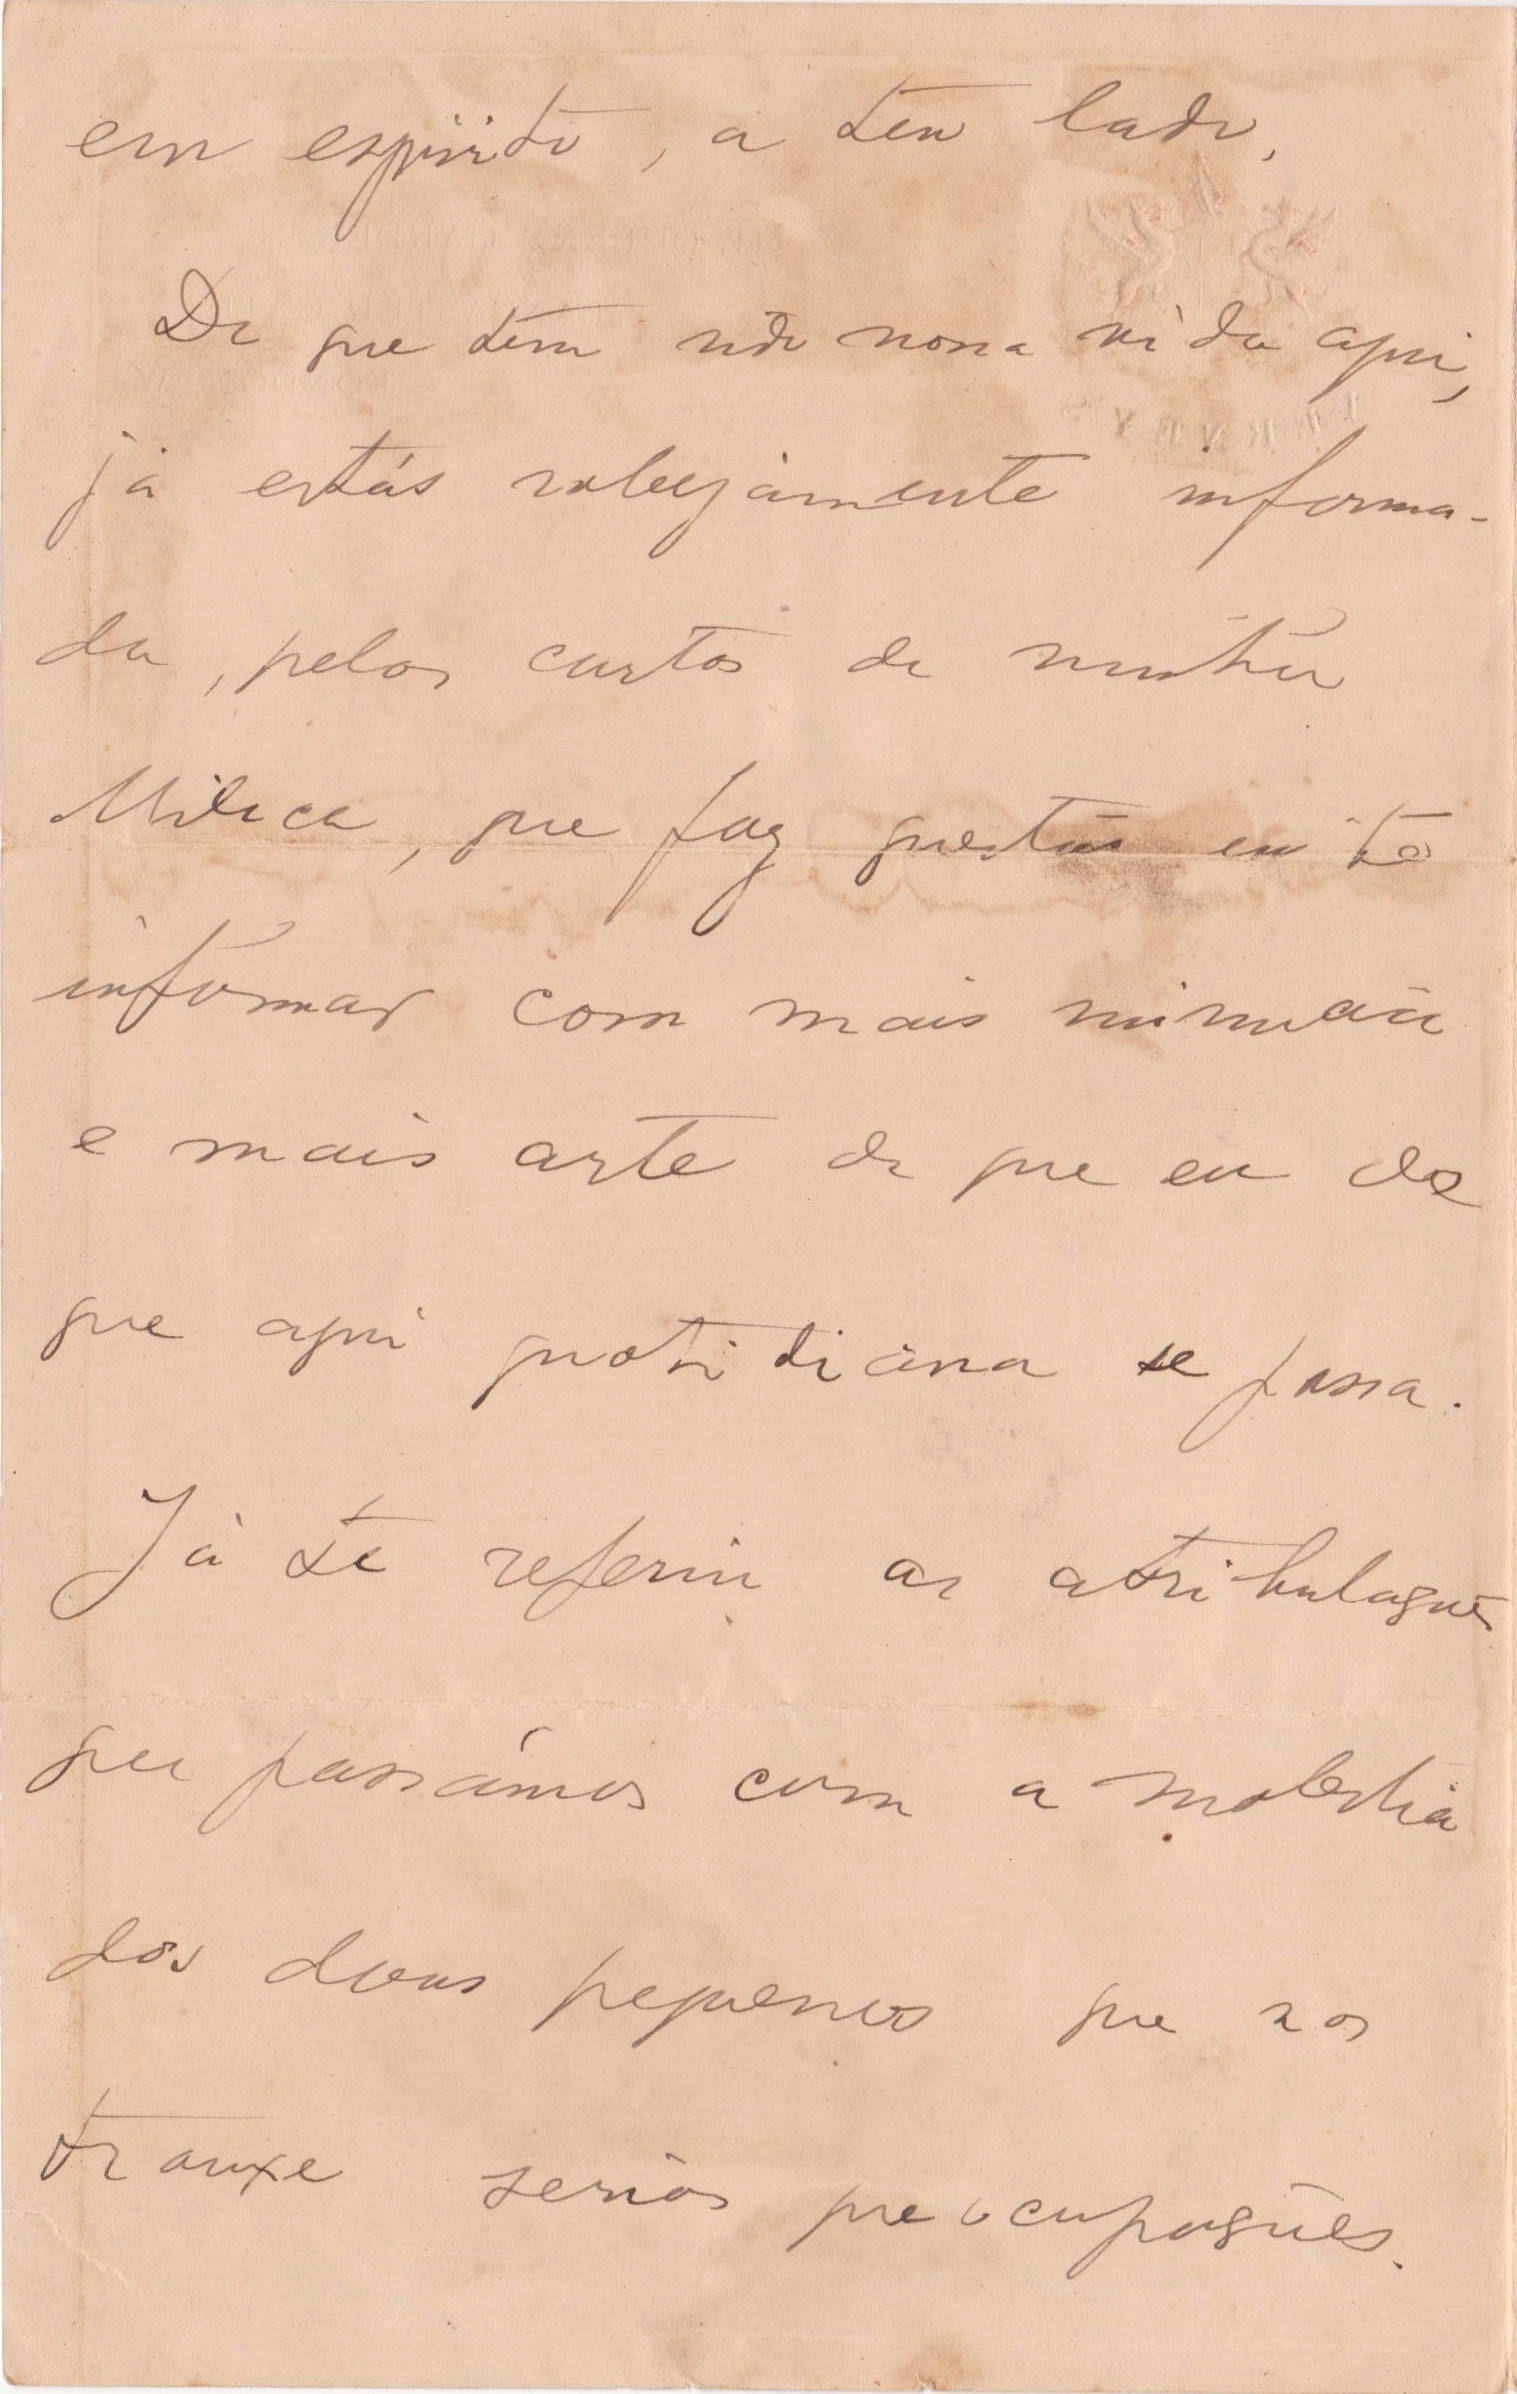 em espirito, a teu lado.
Do que tem sido nossa vida aqui,
já estás sobejamente informa-
da, pelas cartas de minha
Milica, que faz questão em te
informar com mais minucia
e mais arte do que eu do
que aqui quotidiana se passa.
Já te referiu as atribulações
que passámos com a molestia
dos dous pequenos que nos
trouxe serias preocupações.